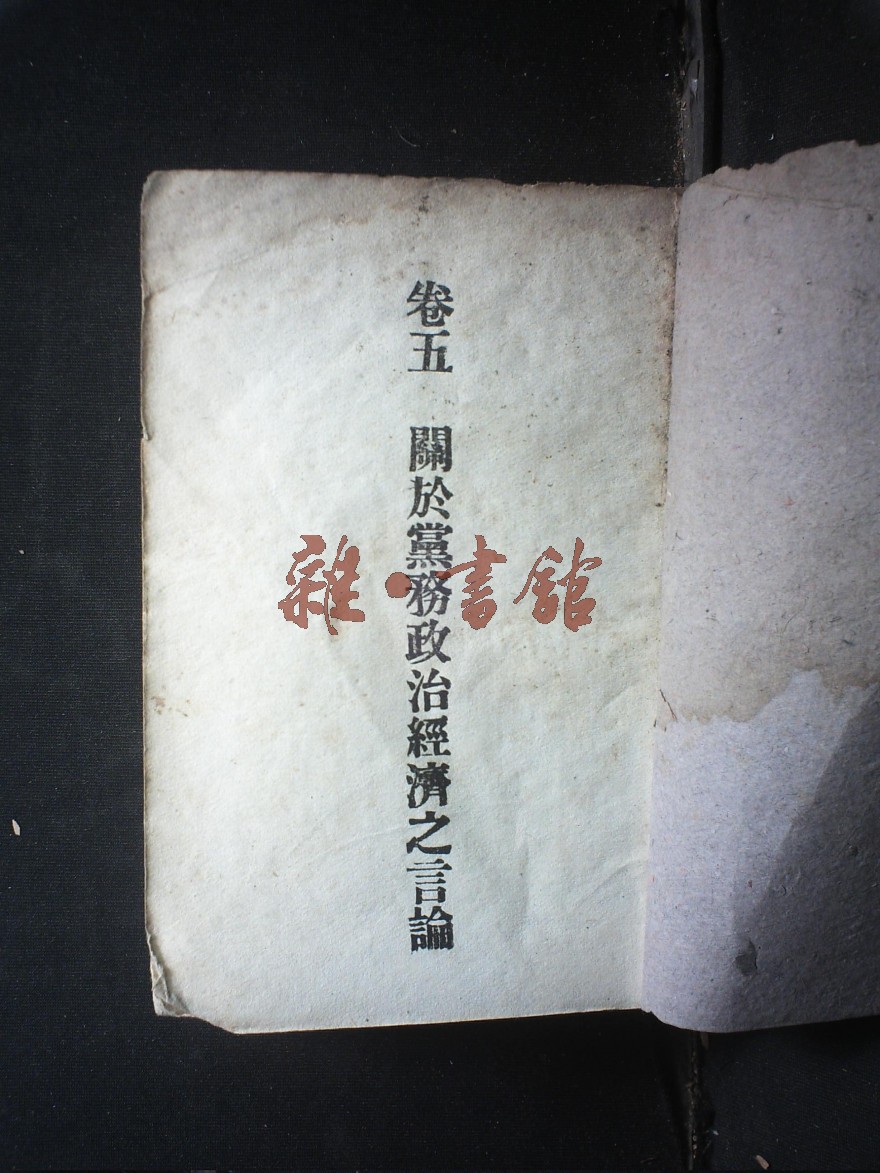 卷五　關於黨務政治經濟之言論
雜·書館